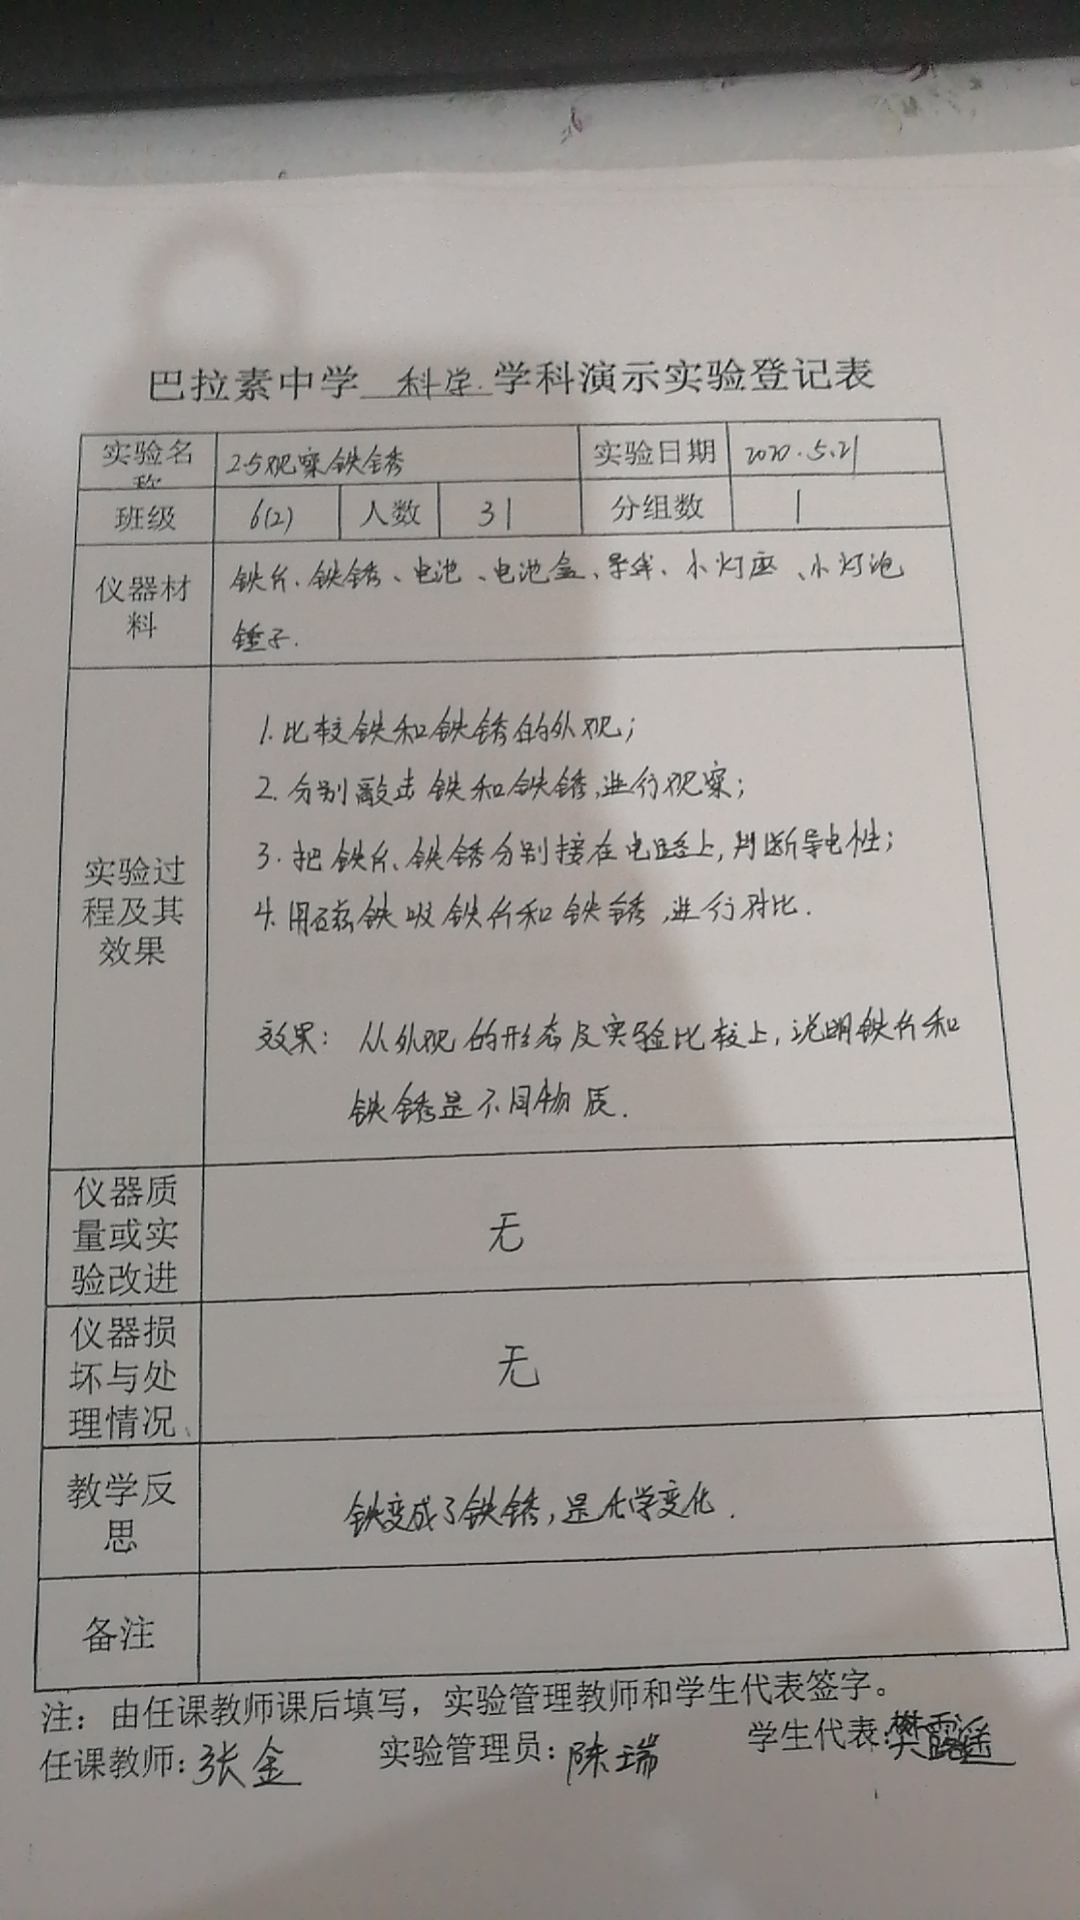 巴拉素中学 科学 学科演示实验登记表
实验名称 2.5观察铁锈 实验日期 2020.5.21
班级 6(2) 人数 31 分组数 1
仪器材料 铁片、铁锈、电池、电池盒、导线、小灯座、小灯泡
锤子.
实验过程及其效果
1.比较铁和铁锈的外观;
2.分别敲击铁和铁锈,进行观察;
3.把铁片、铁锈分别接在电路上,判断导电性;
4.用磁铁吸铁片和铁锈,进行对比.
效果: 从外观的形态及实验比较上,说明铁片和
铁锈是不同物质.
仪器质量或实验改进 无
仪器损坏与处理情况 无
教学反思 铁变成了铁锈,是化学变化.
备注
注：由任课教师课后填写，实验管理教师和学生代表签字。
任课教师:张金 实验管理员:陈瑞 学生代表:樊露